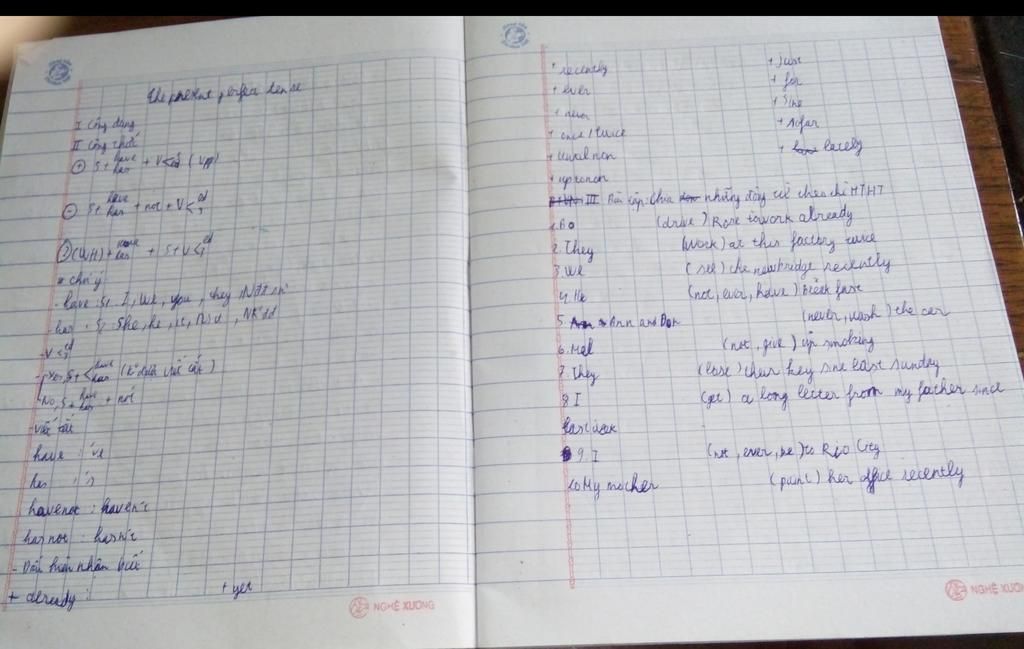 The present perfect tense
I Công dùng
II Công thức
+ S + have has + V ed (Vpp)
- S + have has + not + V < ed 3
? (WH) + have has + S + V < ed 3
* chú ý
- have : S: I, we, you, they,
- has : S: She, he, it,
- V < ed 3
- Yes, S + < have has
- No, S + have has + not
- viết tắt
have : 've
has : 's
have not : haven't
has not : hasn't
- Dấu hiện nhận biết
+ already : + yet
NGHỆ XƯƠNG
+ recently + just
+ ever + for
+ never + sine
+ once / twice
+ until non + lately
+ up to non
III Bài tập: Chia những động từ theo thì HTHT
1. Bo (drive) Rose to work already
2. They (work) at this factory twice
3. We (see) the newbridge recently
4. He (not, ever, have) break fast
5. Ann and Don (never, wash) the car
6. Mel (not, give) up smoking
7. They (lose) their key sine last sundry
8 I (get) a long letter from my father since
last week
9. I (not, ever, be) to Rio City
10 My mother (paint) her office recently
NGHỆ XƯƠN